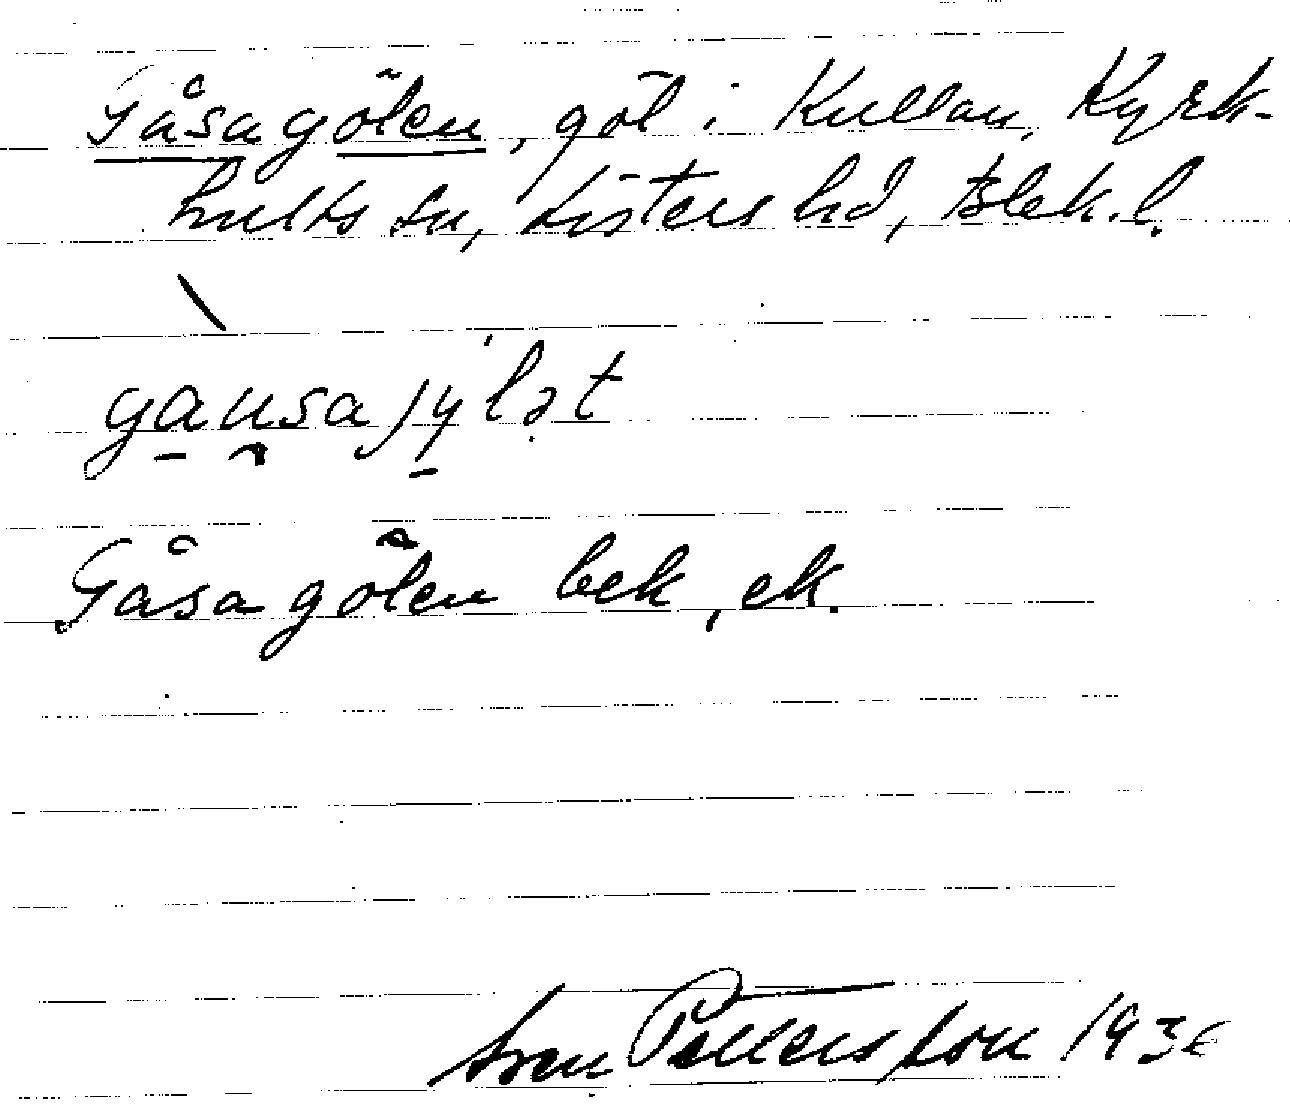 Gåsagölen, göl i Kullan, Kyrk-
hults sn, Listers hd, Blek. l.
gausajylǝt
Gåsagölen bek, ek.
Sven Pettersson 1936